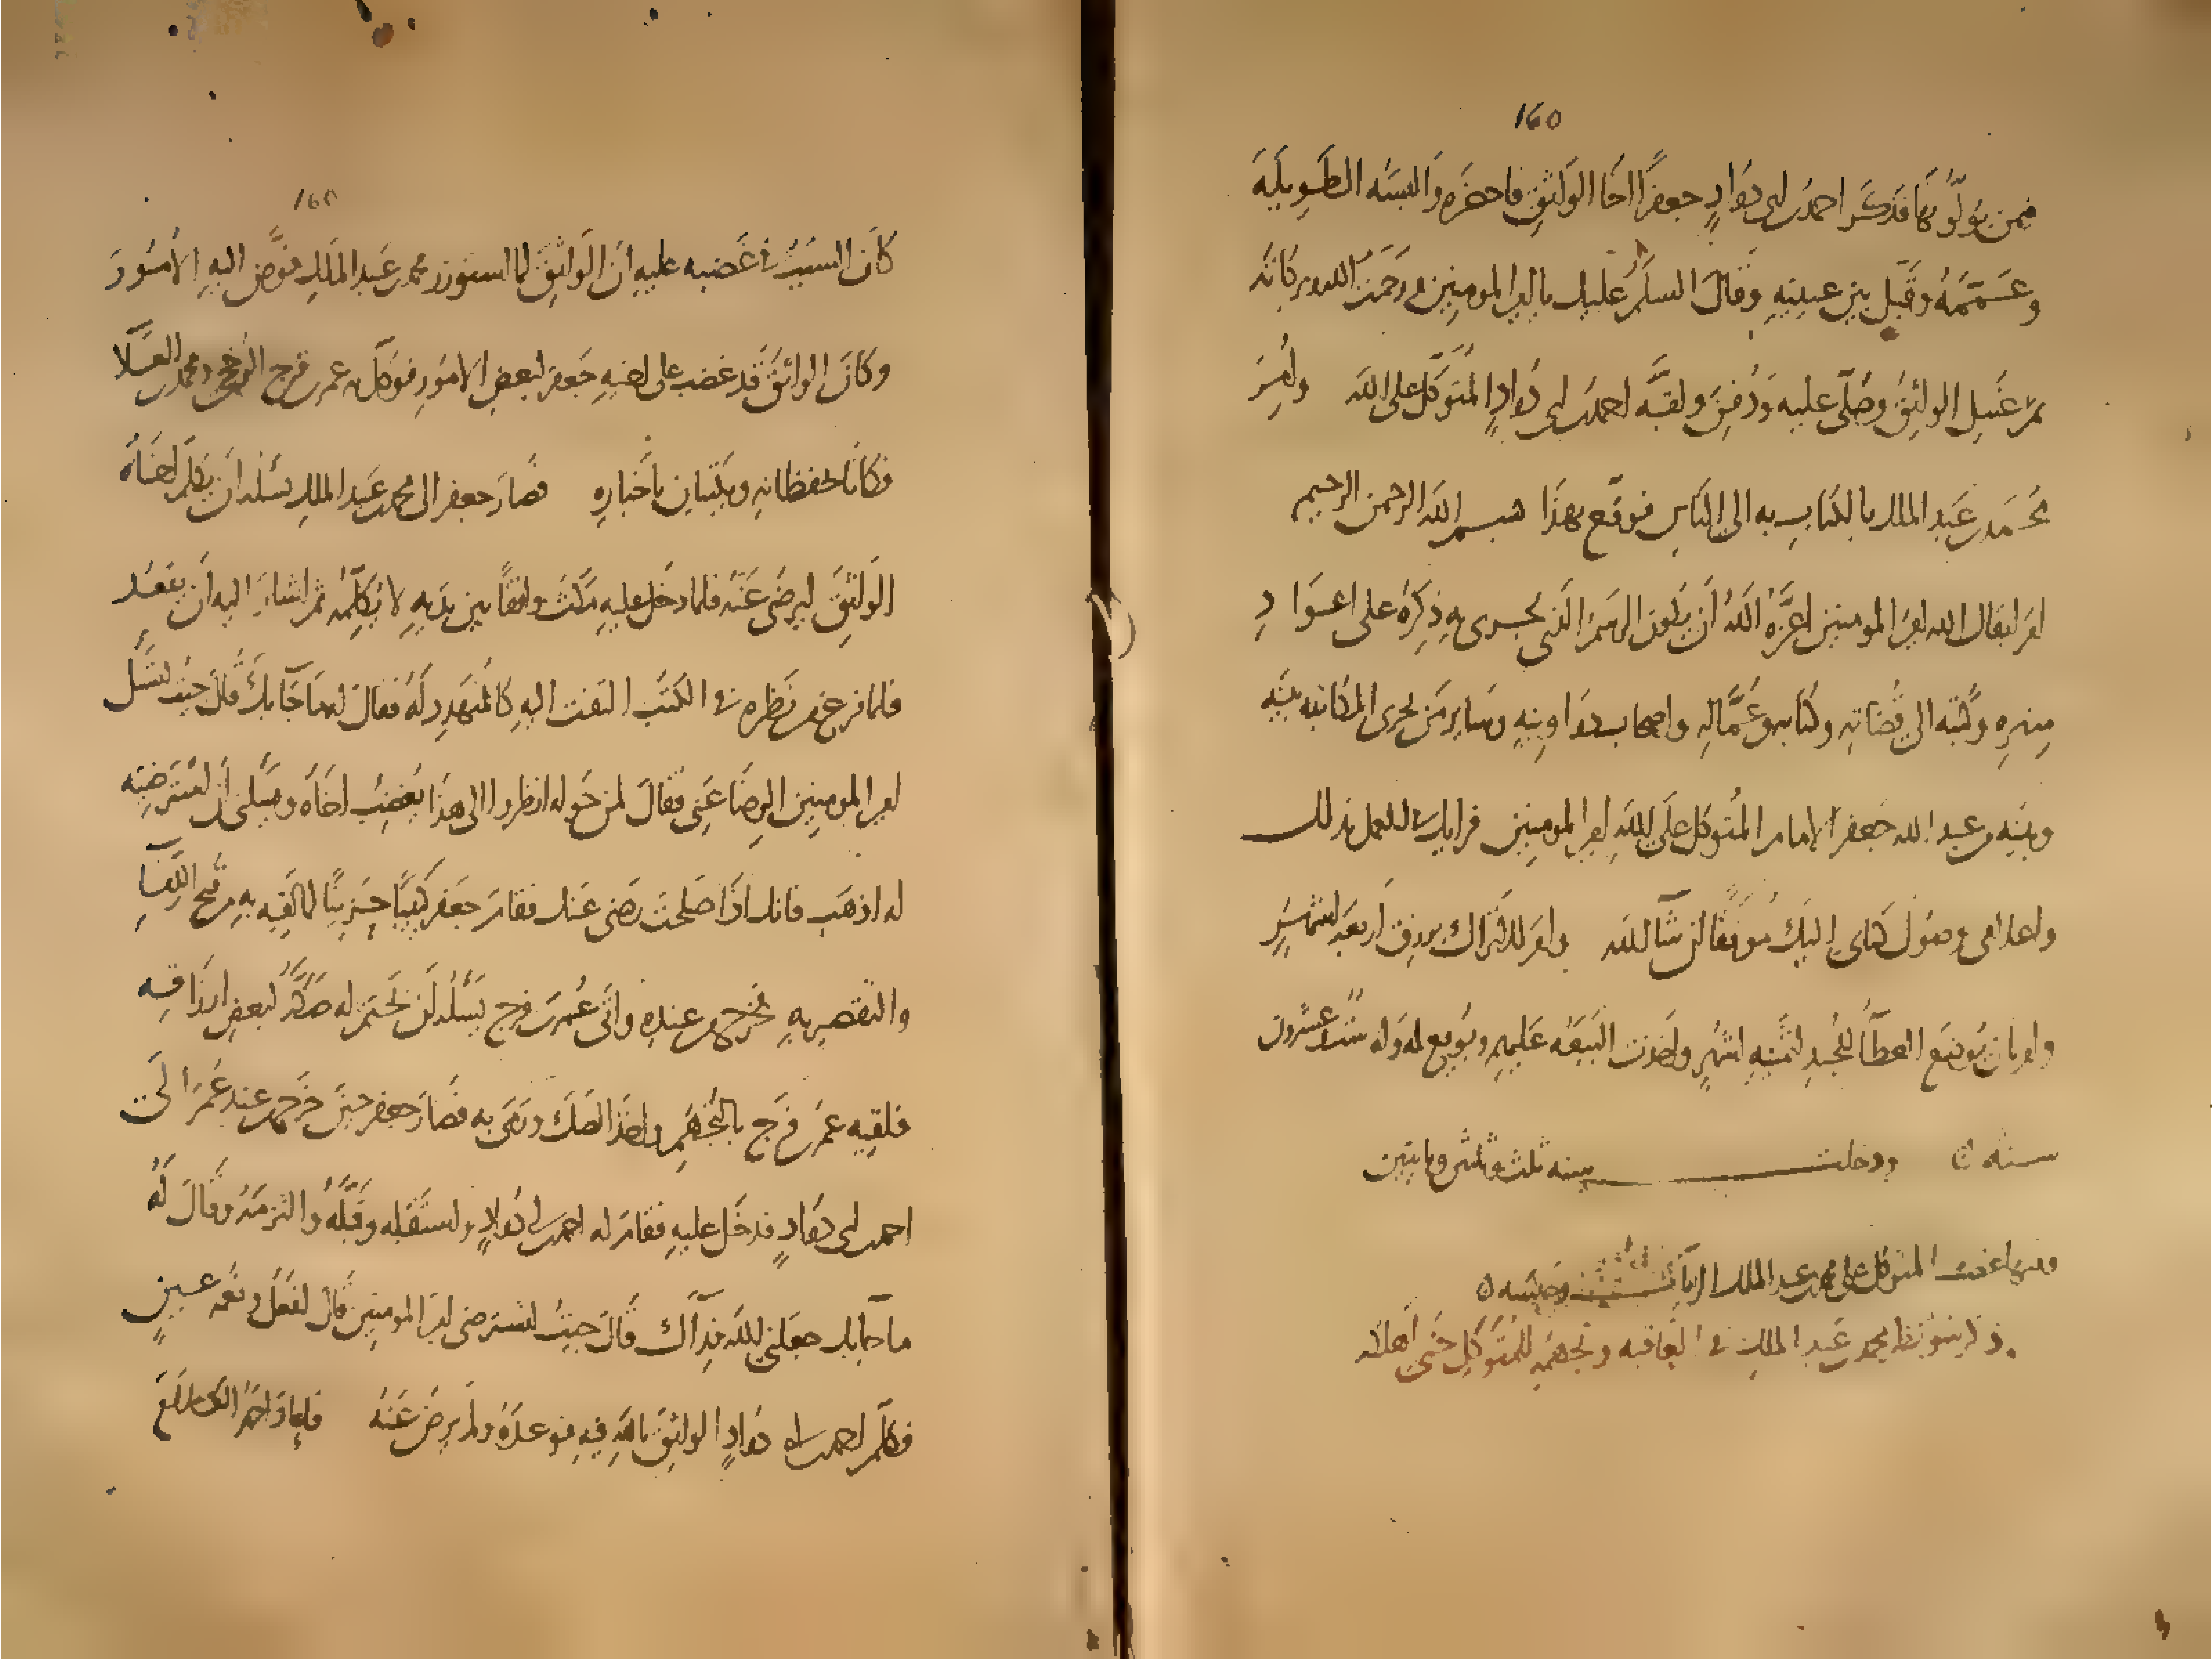 160
فمن يولونها فذكر احمد بن ابى دواد جعفرًا اخا الواثق فاحضره والبسه الطويلة
وعممه وقبل بين عينيه وقال السلم عليك يا امير المومنين ورحمت الله وبركاته
ثم غسل الواثق وصلى عليه ودفن ولقبه احمد بن ابى دواد المتوكل على الله وامر
محمد بن عبد الملك بالكتاب به الى الناس فوقع بهذا بسم الله الرحمن الرحيم
امر ابقاك الله امير المومنين اعزه الله ان يكون الرسم الذى يجرى به ذكره على اعواد
منبره وكتبه الى قضاته وكتابه وعماله واصحاب دواوينه وساير من يجرى المكاتبه بينه
وبينه من عبد الله جعفر الامام المتوكل على الله امير المومنين فرايك فى العمل بذلك
واعلامى وصول كتابى اليك موفقا ان شا الله وامر للاتراك برزق اربعه اشهر
وامر بان يوضع العطا للجند لثمنيه اشهر واخذت البيعه عليهم وبويع له وله ست وعشرون
سنه ودخلت سنه ثلث وثلثين ومايتين
وفيها غضب المتوكل على محمد بن عبد الملك الزيات وحبسه
ذكر سو نظر محمد بن عبد الملك فى العاقبه وتجهمه للمتوكل حتى اهلكه
160
كان السبب فى غضبه عليه ان الواثق لما استوزر محمد بن عبد الملك فوض اليه الامور
وكان الواثق قد غضب على اخيه جعفر لبعض الامور فوكل به عمر بن فرج الرخجى ومحمد بن العلا
فكانا يحفظانه ويكتبان باخباره فصار جعفر الى محمد بن عبد الملك يسئله ان يكلم اخاه
الواثق ليرضى عنه فلما دخل عليه مكث واقفًا بين يديه لا يكلمه ثم اشار اليه ان يقعد
فلما فرغ من نظره فى الكتب التفت اليه كالمتهدد له فقال له ما جا بك قال جيت لتسل
امير المومنين الرضا عنى فقال لمن حوله انظروا الى هذا يغضب اخاه ويسلنى ان استرضيه
له اذهب فانك اذا صلحت رضى عنك فقام جعفر كيبًا حزينًا لما لقيه به من قبح اللقا
والتقصير به فخرج من عنده واتى عمر بن فرج يسئله ان يختم له صكه لبعض ارزاقه
فلقيه عمر بن فرج بالتجهم واخذ الصك ورمى به فصار جعفر حين خرج من عند عمر الى
احمد بن ابى دواد فدخل عليه فقام له احمد بن ابى دواد واستقبله وقبله والتزمه وقال له
ما جا بك جعلنى الله فداك قال جيت لتسترضى امير المومنين قال افعل ونعمه عين
فكلم احمد بن ابى دواد الواثق بالله فيه فوعده ولم يرض عنه